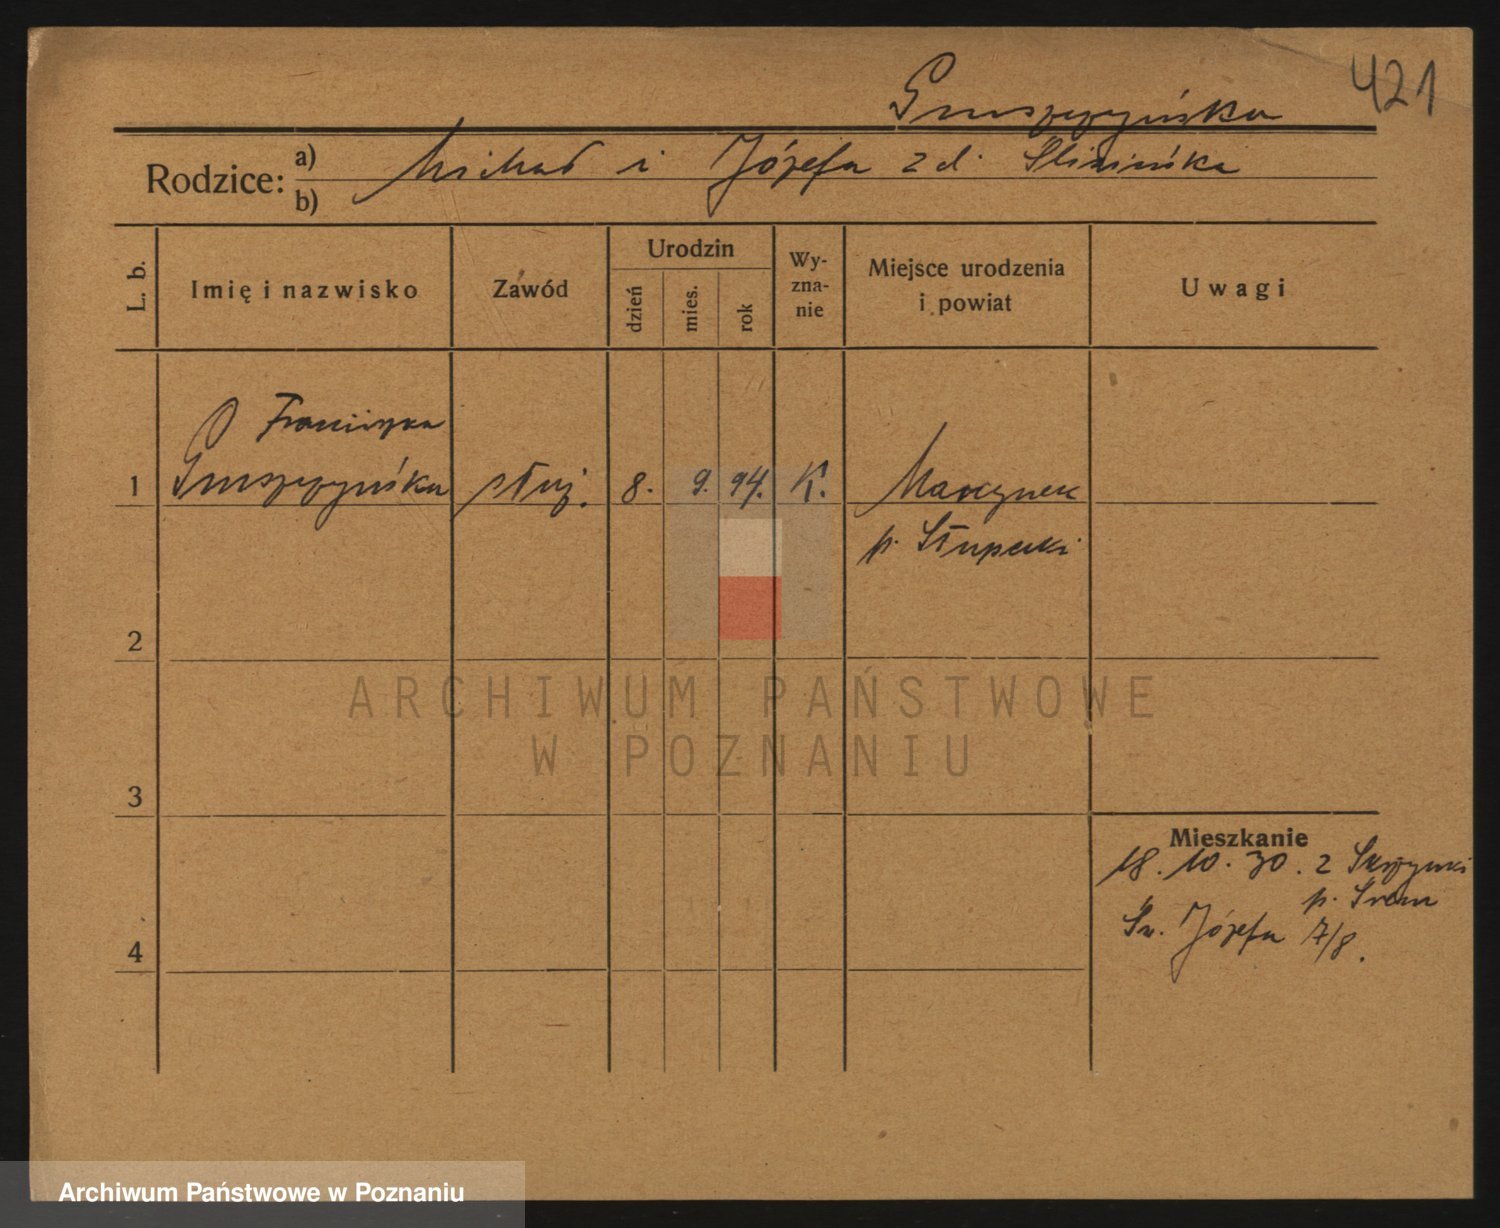 421
Gruszczyńska
Rodzice: a) b) Michał i Józefa z d. Śliwińska
L. b.
Imię i nazwisko
Zawód
Urodzin
dzień
mies.
rok
Wy-
zna-
nie
Miejsce urodzenia
i powiat
Uwagi
Franciszka
1 Gruszczyńska służ. 8. 9. 94. K.
p. Słupecki
2
3
4
Mieszkanie
18. 10. 30. z
p. Śrem
Św. Józefa 7/8.
ARCHIWUM PAŃSTWOWE
W POZNANIU
Archiwum Państwowe w Poznaniu